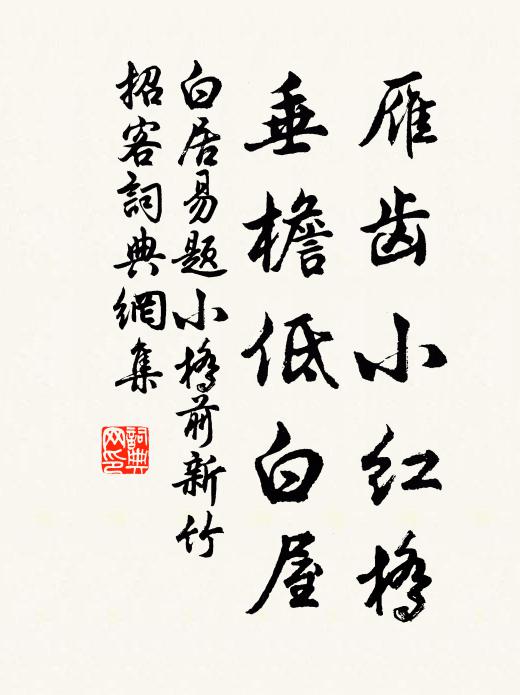 雁齿小红橋
垂檐低白屋
白居易题小橋前新竹
招客詞典網集
詞典
网印